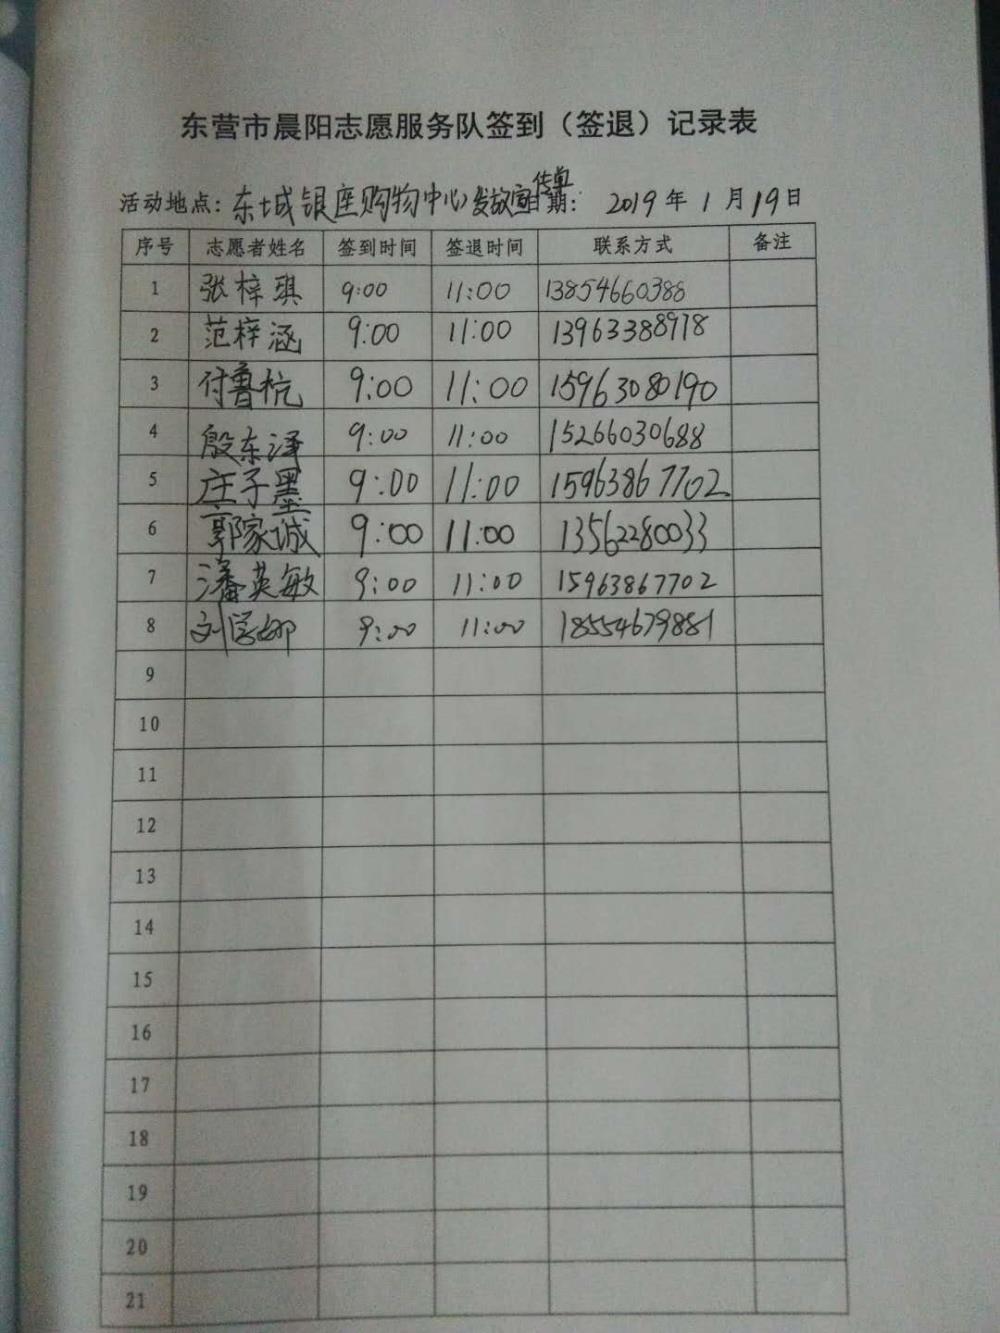 东营市晨阳志愿服务队签到（签退）记录表
活动地点：东城银座购物中心发放宣传单 日期： 2019年1月19日
序号 志愿者姓名 签到时间 签退时间 联系方式 备注
1 张梓琪 9:00 11:00 13854660388
2 范梓涵 9:00 11:00 13963388978
3 付鲁杭 9:00 11:00 15963080190
4 殷东泽 9:00 11:00 15266030688
5 庄子墨 9:00 11:00 15963867702
6 郭家诚 9:00 11:00 13562280033
7 潘英敏 9:00 11:00 15963867702
8 刘学娜 9:00 11:00 18554679881
9
10
11
12
13
14
15
16
17
18
19
20
21